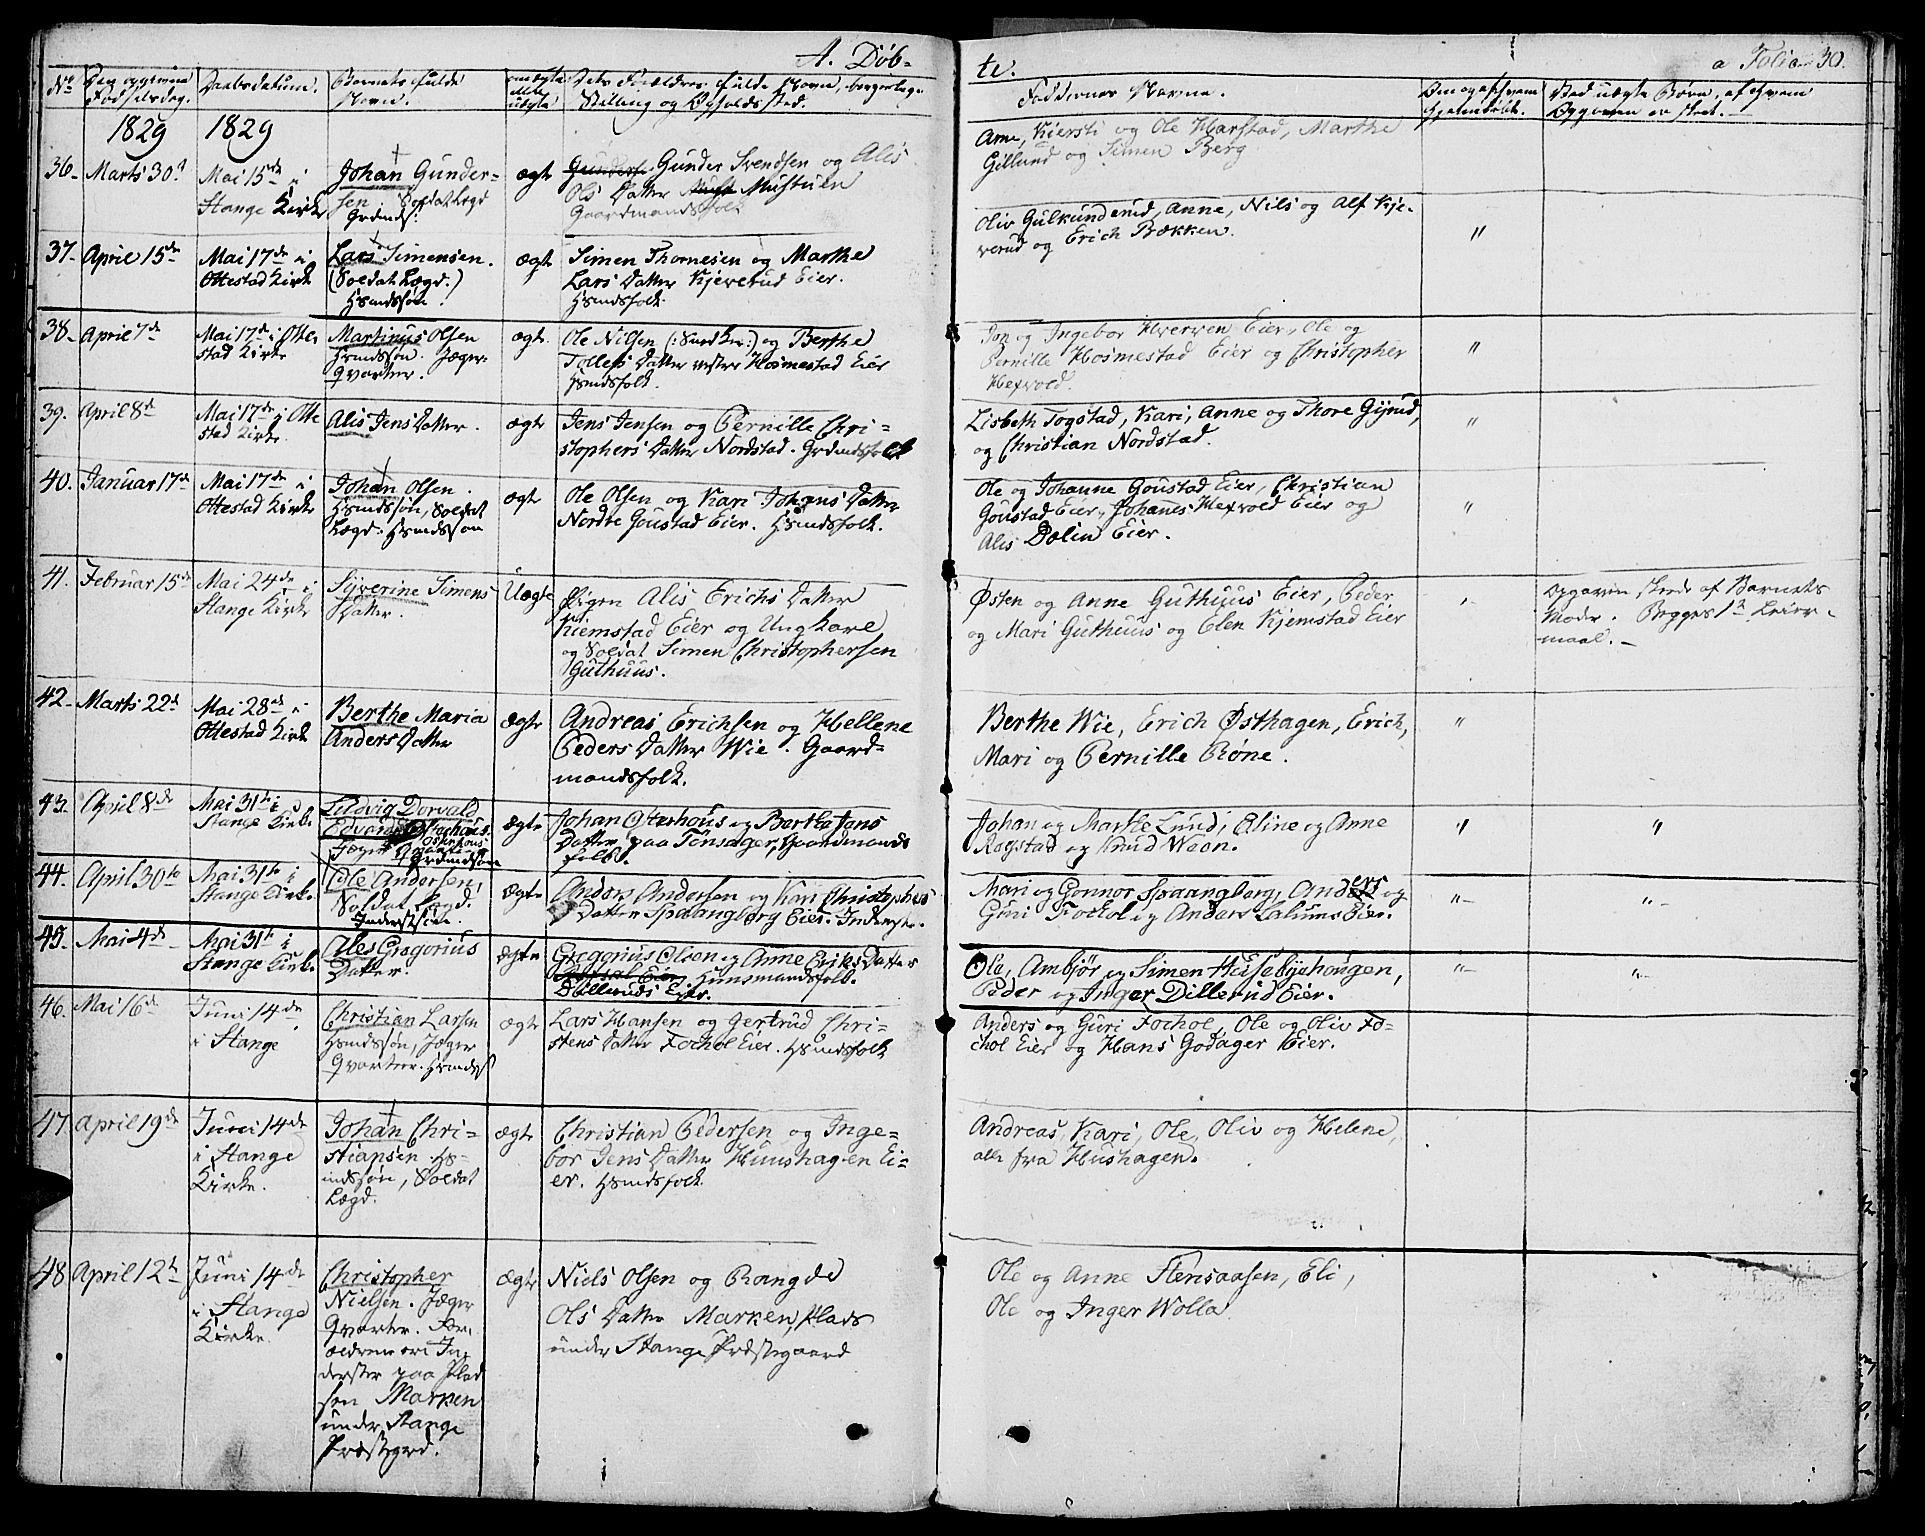 A. Døb-
te.
a Folio 30.
No
Den opgivne
Fødselsdag.
Daabsdatum.
Barnets fulde
Navn.
uægte
Dets Forældres fulde Navn, borgerlige
Stilling og Opholdssted.
Faddernes Navne.
1829 1829
36. Marts 30d
Mai 15de i
Stange Kirke
Johan Gunder-
sen. Soldat Lægd
Grdmds:
ægte
Gunder Svendsen og Alis
Ols Datter Mustuen
Gaardmandsfolk
Arne, Kiersti og Ole Harstad, Marthe
Gillund og Simen Berg
37. April 15de
Mai 17de i
Ottestad Kirke
Lars Simensen.
(Soldat Lægd.)
Hsmdssøn.
ægte
Simen Thornesen og Marthe
Lars Datter Kjeverud Eier.
Hsmdsfolk.
Oliv Gulkunderud, Anne, Nils og Alf Kje-
verud og Erich Bækken.
"
38. April 7de
Mai 17de i Otte-
stad Kirke
Martinus Olsen
Hsmdssøn. Jæger
Qvarter.
ægte
Ole Nilsen og Berthe
Tollefs Datter vestre Hosmestad Eier
Hsmdsfolk.
Jon og Ingebor Hverven Eier, Ole og
Pernille Hosmestad Eier og Christopher
Hexvold.
"
39. April 8de
Mai 17de i Otte
stad Kirke.
Alis Jens Datter.
ægte
Jens Jensen og Pernille Chri=
stophers Datter Nordstad. Grdmdsfolk
Lisbeth Togstad, Kari, Anne og Thore Gyrud,
og Christian Nordstad.
"
40. Januar 17de
Mai 17de i
Ottestad Kirke
Johan Olsen.
Hsmdssøn, Soldat
Lægd. Hsmdssøn
ægte
Ole Olsen og Kari Johans Datter
Nordre Goustad Eier. Hsmdsfolk.
Ole og Johanne Goustad Eier, Christian
Goustad Eier, Johanes Hexvold Eier og
Alis Dolin Eier.
"
41. Februar 15de
Mai 24de i
Stange Kirke
Syverine Simens
Datter.
Uægte
Pigen Alis Erichs Datter
Kiemstad Eier og Ungkarl
og Soldat Simen Christophersen
Guthuus.
Østen og Anne Guthuus Eier, Peder
og Mari Guthuus og Elen Kjemstad Eier
"
Opgaven skede af Barnets
Moder. Begges 1te Leier-
maal.
42. Marts 22d
Mai 28de i
Ottestad Kirke
Berthe Maria
Anders Datter
ægte
Andreas Erichsen og Hellene
Peders Datter Wie. Gaard-
mandsfolk.
Berthe Wie, Erich Østhagen, Erich,
Mari og Pernille Røne.
"
43. April 8de
Mai 31te i
Stange Kirke.
Ludvig Dorvald
Edvard Osterhous
Jæger
Grdmdssøn
ægte
Johan Osterhous og Berthe Jans
Datter paa Tønsager, Gaardmands
folk.
Johan og Marthe Lund, Eline og Anne
Rogstad og Knud Waon.
" "
44. April 30te
Mai 31te i
Stange Kirke.
Ole Andersen,
Soldat Lægd.
Inderstsøn.
Ægte
Anders Andersen og Kari Christophers
Datter Spaangberg Eier. Inderster.
Mari og Gonnor Spaangberg, Anders og
Guri Fockol og Anders Lalums Eier.
" "
45. Mai 4de
Mai 31te i
Stange Kirke.
Ales Gregorius
Datter.
ægte
Gregorius Olsen og Anne Eriks Datter
Huusmandsfolk.
Dilleruds Eier.
Ole, Ambjør og Simen Husebyehougen,
Peder og Inger Dillerud Eier.
" "
46. Mai 16de
Juni 14de
i Stange
Christian Larsen
Hsmdssøn, Jæger
Qvarteer. Hsmdss
ægte
Lars Hansen og Gertrud Chri=
stens Datter Fochol Eier. Hsmdsfolk
Anders og Guri Fochol, Ole og Oliv Fo=
chol Eier og Hans Godager Eier.
47. April 19de
Juni 14de
i Stange
Kirke.
Johan Chri=
stiansen. Hs-
mdssøn, Soldat
Lægd.
ægte
Christian Pedersen og Inge-
bor Jens Datter Huushagen Ei-
er. Hsmdsfolk
Andreas, Kari, Ole, Oliv og Helene,
alle fra Hushagen.
48 April 12te
Juni 14de
i Stange
Kirke.
Christopher
Nielsen. Jæger
Qvarter. For-
ældrene ere In-
derster paa Plad
sen Marken
under Stange
Præstegrd.
ægte
Niels Olsen og Rangdi
Ols Datter Marken, Plads
under Stange Præstegaard
Ole og Anne Stensaasen, Eli,
Ole og Inger Wolla